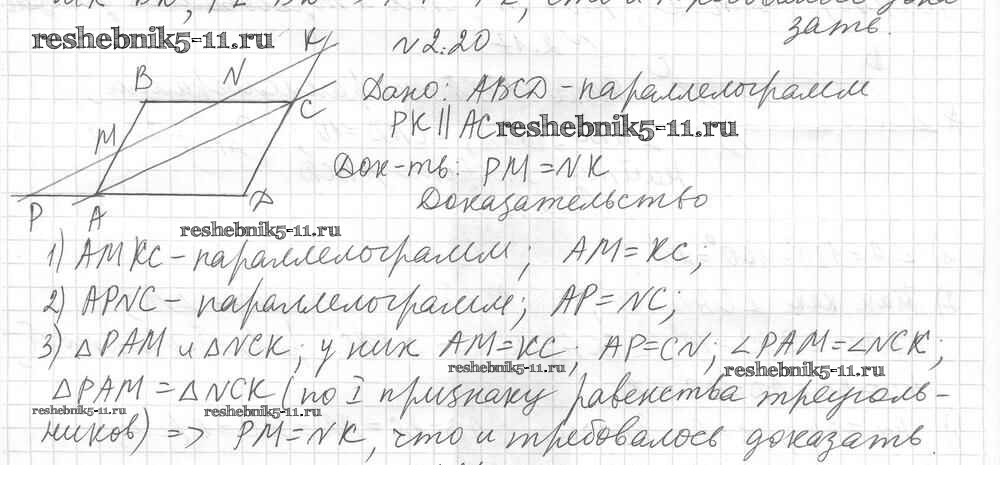 reshebnik5-11.ru
зать.
N 2.20
K
B N
Дано: ABCD - параллелограмм
C
PK || AC
reshebnik5-11.ru
M
Док-ть: PM = NK
P A D
Доказательство
reshebnik5-11.ru
1) AMKC - параллелограмм; AM = KC;
2) APNC - параллелограмм; AP = NC;
3) △PAM и △NCK; у них AM = KC; AP = CN; ∠PAM = ∠NCK;
reshebnik5-11.ru reshebnik5-11.ru
△PAM = △NCK (по I признаку равенства треуголь-
reshebnik5-11.ru reshebnik5-11.ru
ников) => PM = NK, что и требовалось доказать.